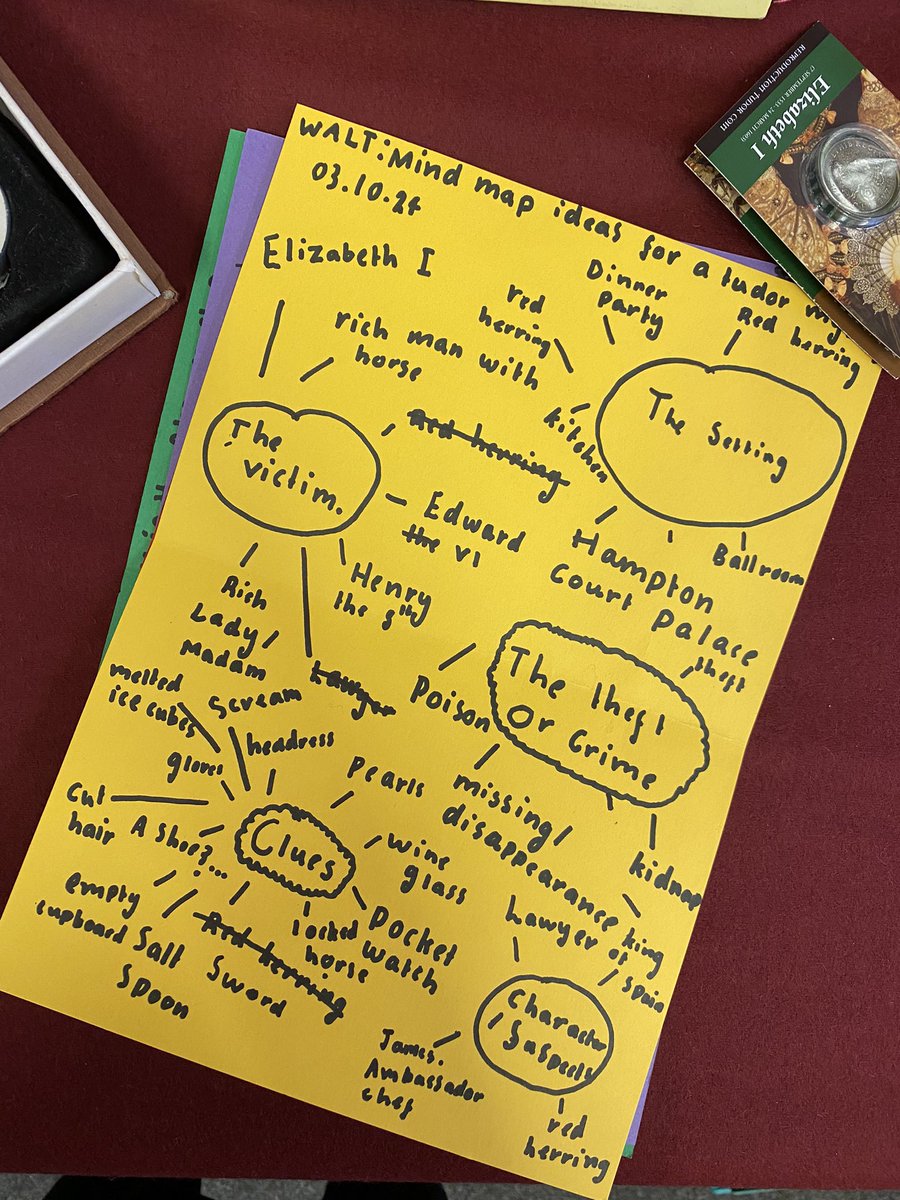 WALT: Mind map ideas for a tudor my
03.10.24
Elizabeth I
rich man with
horse
Red herring
The
victim.
Edward
the VI
Henry
the 8th
Rich
Lady/
Madam
Lawyer
red
herring
Dinner
Party
Red herring
kitchen
The Setting
Hampton
Court Palace
Ballroom
The theft
Or Crime
theft
Poison
missing/
disappearance
kidnap
melted
ice cubes
Scream
headress
gloves
Pearls
Cut
hair
A Shoe?...
Clues
wine
glass
Pocket
Watch
locked
horse
Red herring
Sword
empty
cupboard
Salt
Spoon
Lawyer
king
of
Spain
Character
/Suspects
James.
Ambassador
chef
red
herring
REPRODUCTION TUDOR COIN
Elizabeth I
17 SEPTEMBER 1533 - 24 MARCH 1603